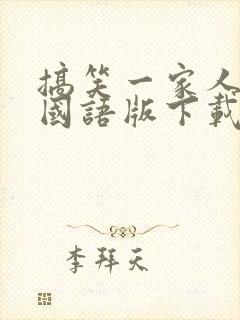 搞笑一家人
國語版下載
李拜天